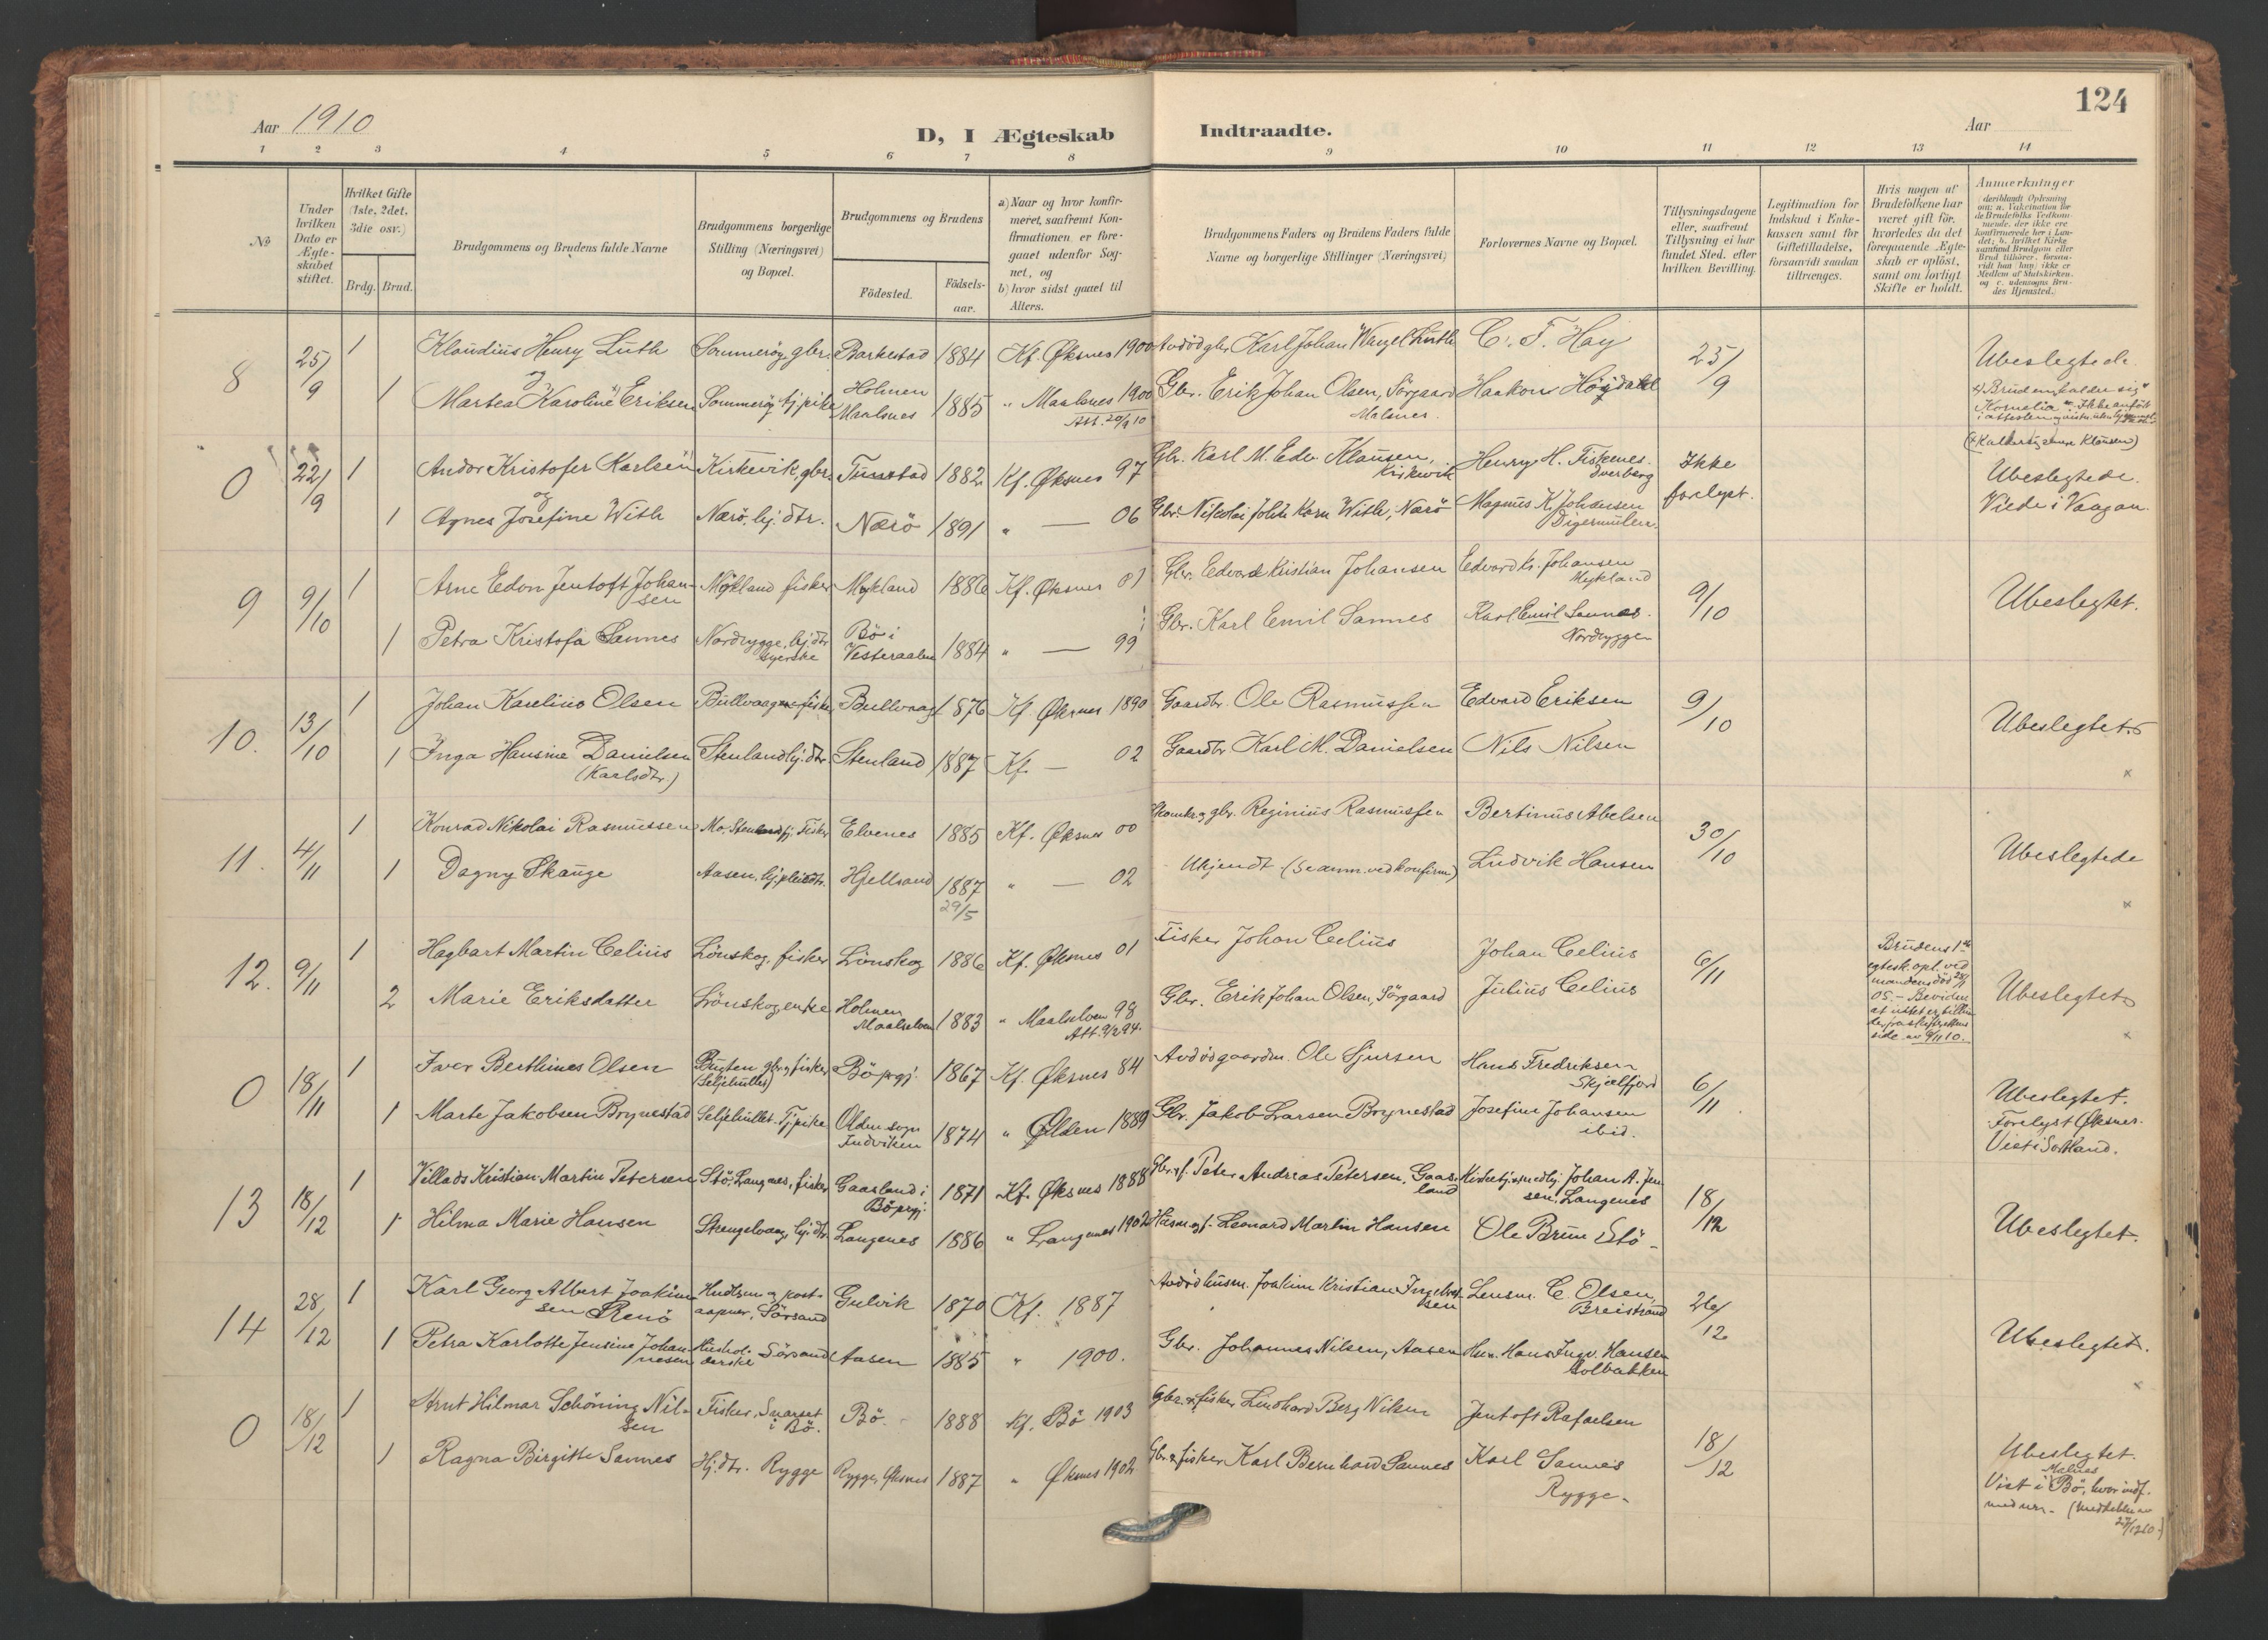 124
Aar 1910
D, I Ægteskab Indtraadte.
Aar
1 2 3 4 5 6 7 8 9 10 11 12 13 14
№
Under hvilken Dato er Ægteskabet stiftet.
Hvilket Gifte (1ste, 2det, 3die osv.)
Brdg. Brud.
Brudgommens og Brudens fulde Navne
Brudgommens borgerlige Stilling (Næringsvei) og Bopæl.
Brudgommens og Brudens
Fødested.
Fødselsaar.
a) Naar og hvor konfirmeret, saafremt Konfirmationen er foregaaet udenfor Sognet, og
b) hvor sidst gaaet til Alters.
Brudgommens Faders og Brudens Faders fulde Navne og borgerlige Stillinger (Næringsvei)
Forlovernes Navne og Bopæl.
Tillysningsdagene eller, saafremt Tillysning ei har fundet Sted, efter hvilken Bevilling.
Legitimation for Indskud i Enkekassen samt for Giftetilladelse, forsaavidt saadan tiltrænges.
Hvis nogen af Brudefolkene har været gift før, hvorledes da det foregaaende Ægteskab er opløst, samt om lovligt Skifte er holdt.
Anmerkninger
8 25/9 1 Klaudius Henry Luth Sommerøy gbr. Barkestad 1884 Kf. Øksnes 1900 Avdöd gbr. Karl Johan Wangel Luth C. F. Hay 25/9 Ubeslegtede.
og
1 Martea Karoline Eriksen Sommerøy tj. pike Holmen Maalsnes 1885 " Maalsnes 1900 Att. 20/9 10 Gbr. Erik Johan Olsen, Sörgaard Malsnes. Haakon Höydahl
0 22/9 1 Andor Kristofer Karlsen Kirkevik, gbr. Tunstad 1882 Kf. Øksnes 97 Gbr. Karl M. Edv. Klausen, Kirkevik Henry H. Fiskenes. Dverberg Ikke forelyst. (Kalder sig Klausen) Ubeslegtede. Viede i Vaagan.
og
1 Agnes Josefine With Nærö, hj. dtr. Nærö 1891 " — 06 Gbr. Nikolai Johch Korn With, Nærö Magnus K. Johansen Digermulen.
9 9/10 1 Arne Edon Jentoft Johansen Mykland fisker Mykland 1886 Kf. Øksnes 01 Gbr. Edvard Kristian Johansen Edvard Kr. Johansen Mykland 9/10 Ubeslegtet.
1 Petra Kristofa Sannes Nordrygge, hj. dtr. syerske Bö i Vesteraalen 1884 " — 99 Gbr. Karl Emil Sannes Karl Emil Sannes. Nordrygge
10. 13/10 1 Johan Karelius Olsen Bullvaag fisker Bullvaag 1876 Kf. Øksnes 1890 Gaardbr. Ole Rasmussen Edvard Eriksen 9/10 Ubeslegtet.
1 Inga Hansine Danielsen (Karlsdtr.) Stenland hj. dtr. Stenland 1887 Kf. — 02 Gaardbr. Karl M. Danielsen Nils Nilsen
11. 4/11 1 Konrad Nikolai Rasmussen Fisker Elvenes 1885 Kf. Øksnes 00 gbr. Reginius Rasmussen Bertinus Abelsen 30/10 Ubeslegtede
1 Dagny Skauge Aasen, hj. pleiedtr. Hjellsand 1887 29/5 " — 02 Ukjendt (Se anm. ved konfirm.) Ludvik Hansen
12. 9/11 1 Hagbart Martin Celius Lönskog, fisker Lönskog 1886 Kf. Øksnes 01 Fisker Johan Celius Johan Celius 6/11 Brudens 1ste egtesk. opl. ved mandens död 28/1 05. Ubeslegtet
2 Marie Eriksdatter Lönskog, enke Holmen Maalselven 1883 " Maalselven 98 Gbr. Erik Johan Olsen, Sörgaard Julius Celius
0 18/11 1 Iver Berthines Olsen Bugten gbr. og fisker (Seljehullet) Bö prgj. 1867 Kf. Øksnes 84 Avdöd gaardm. Ole Sjursen Hans Fredriksen Skjælfjord 6/11 Ubeslegtet. Forelyst Øksnes. Viet i Sortland.
1 Marte Jakobsen Brynestad Seljehullet. Tj. pike Olden sogn Indviken 1874 " Olden 1889 Gbr. Jakob Larsen Brynestad Josefine Johansen ibid.
13 18/12 1 Villads Kristian Martin Petersen Stö, Langnes, fisker Gaasland i Bö prgj. 1871 Kf. Øksnes 1888 Gbr. og f. Peter Andreas Petersen, Gaasland Johan A. Jensen, Langenes 18/12 Ubeslegtet.
1 Hilma Marie Hansen Strengelvaag, hj. dtr. Langenes 1886 " Langenes 1902 Husm. og f. Leonard Martin Hansen Ole Brun Stö
14 28/12 1 Karl Georg Albert Joakimsen Renö Hndlsm. og postaapner, Sörsand Gulvik 1870 Kf. 1887 Avdöd husm. Joakim Kristian Lensm. C. Olsen, Breistrand 26/12 Ubeslegtet.
1 Petra Karlotte Jensine Johannesen Husholderske Sörsand Aasen 1885 " 1900. Gbr. Johannes Nilsen, Aasen Hsm. Hans Ingv. Hansen Solbakken
0 18/12 1 Arnt Hilmar Schöning Nilsen Fisker, Snarset i Bö. Bö 1888 Kf. Bö 1903 Gbr. & fisker Linohard Berg Nilsen Jentoft Rafaelsen 18/12 Ubeslegtet. Malnes Viet i Bö, hvor indf.
1 Ragna Birgitte Sannes Hj. dtr. Rygge Rygge, Øksnes 1887 " Øksnes 1902 Gbr. & fisker Karl Bernhard Sannes Karl Sannes Rygge.